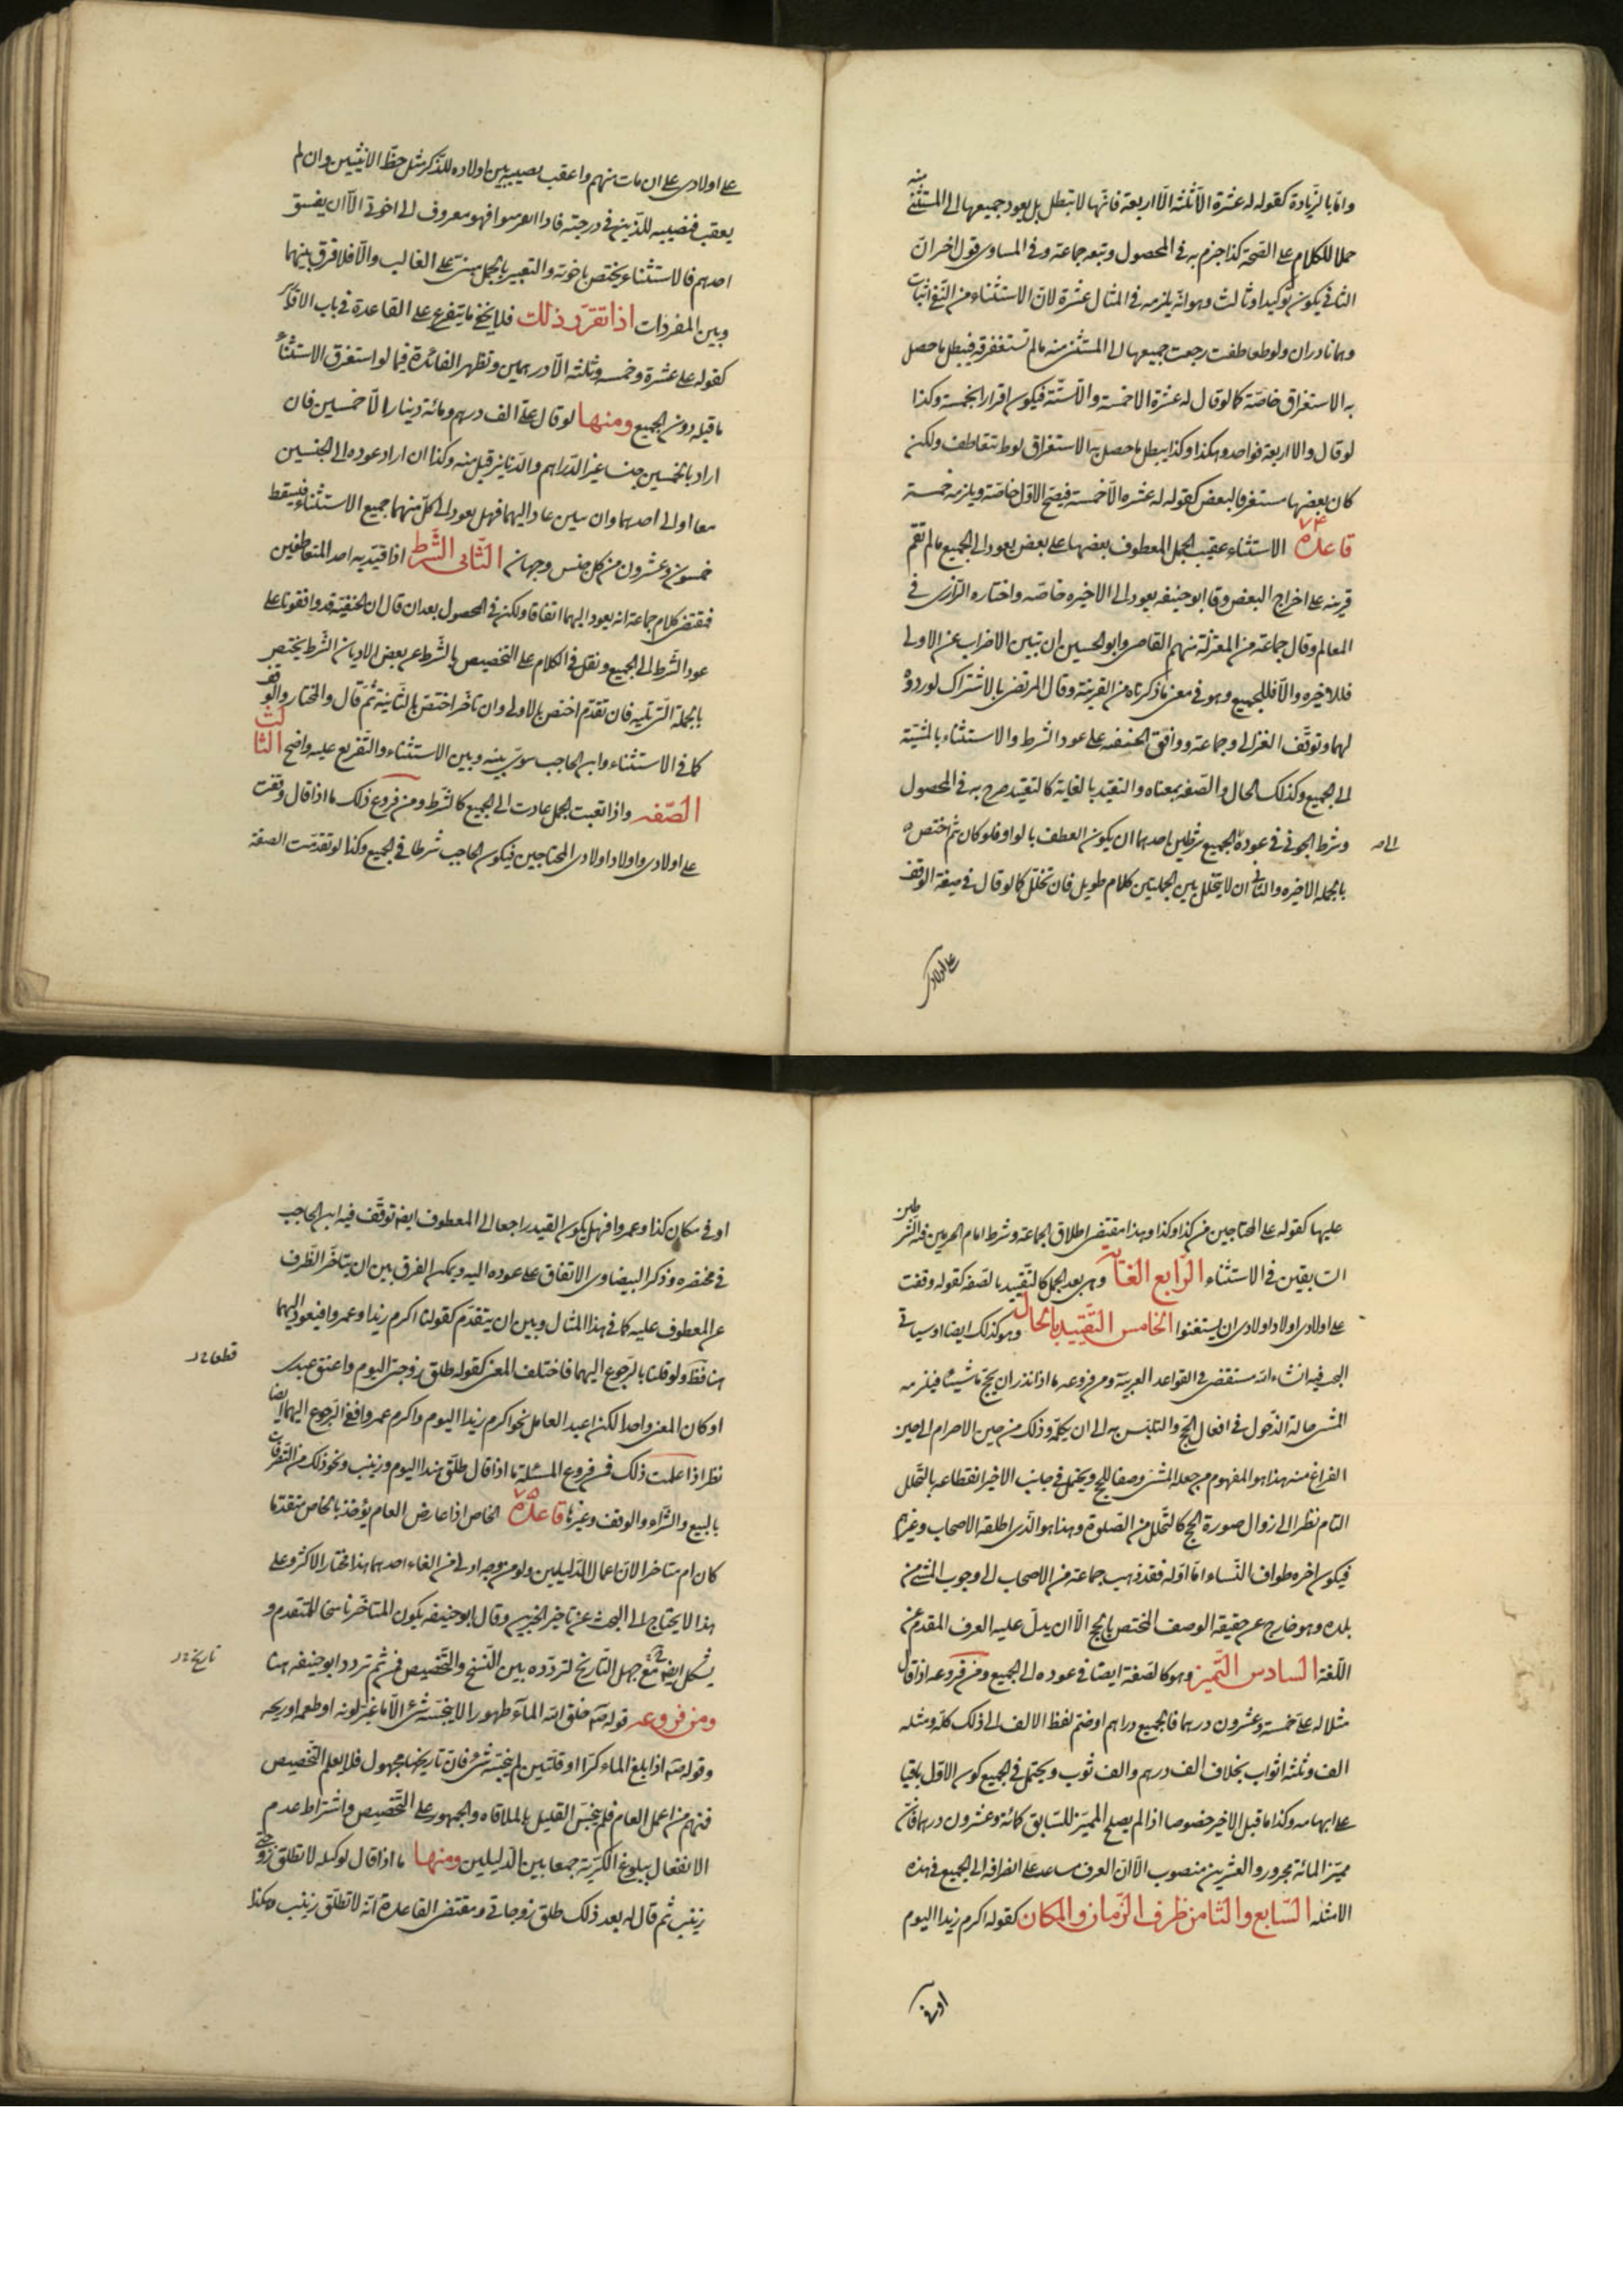 واما بالزيادة كقوله له عشرة الا ثلثة الا اربعة فانها لا تبطل بل يعود جميعها الى المستثنى منه
حملا للكلام على الصحة كذا جزم به في المحصول وتبعه جماعة وفي المساوى قول اخر ان
الثاني يكون توكيدا وثالث وهو انه يلزمه في المثال عشرة لان الاستثناء من النفي اثبات
وهما نادران ولو تعاطفت رجعت جميعها الى المستثنى منه ما لم تستغرقه فيبطل ما حصل
به الاستغراق خاصة كما لو قال له عشرة الا خمسة والا ستة فيكون اقرارا بخمسة وكذا
لو قال والا اربعة فواحد وهكذا وكذا يبطل ما حصل به الاستغراق لو لم تتعاطف ولكن
كان بعضها مستغرقا لبعض كقوله له عشرة الا خمسة فيصح الاول خاصة ويلزمه خمسة
قاعدة ٧٤ الاستثناء عقيب الجمل المعطوف بعضها على بعض يعود الى الجميع ما لم تقم
قرينة على اخراج البعض وقا ابو حنيفه يعود الى الاخيره خاصة واختاره الرازى في
المعالم وقال جماعة من المعتزلة منهم القاضى وابو الحسين ان تبين الاضراب عن الاولى
فللاخيره والا فللجميع وهو في معنى ما ذكرناه من القرينة وقال المرتضى بالاشتراك لوروده
لهما وتوقف الغزالى وجماعة ووافق الحنيفه على عود الشرط والاستثناء بالمشية
الى الجميع وكذلك الحال والصفة بمعناه والتقييد بالغاية كالتقييد صرح به في المحصول
وشرط الجوينى في عوده الى الجميع شرطين احدهما ان يكون العطف بالواو فلو كان ثم اختص
بالجملة الاخيره والثانى ان لا يتخلل بين الجملتين كلام طويل فان تخلل كما لو قال في صيغة الوقف
على اولادى
على اولادى على ان مات منهم واعقب نصيبه بين اولاده للذكر مثل حظ الانثيين وان لم
يعقب فنصيبه للذين في درجته فاذا انقرضوا فهو معروف الى اخوتى الا ان يفسق
احدهم فالاستثناء يختص باخوته والتعبير بالجمل مبنى على الغالب والا فلا فرق بينهما
وبين المفردات اذا تقرر ذلك فلا يخفى ما يتفرع على القاعدة في باب الاقرار
كقوله على عشرة وخمسه وثلثة الا درهمين وتظهر الفائدة فيما لو استغرق الاستثناء
ما قبله دون الجميع ومنها لو قال على الف درهم ومائة دينار الا خمسين فان
اراد بالخمسين جنسا غير الدراهم والدنانير قبل منه وكذا ان اراد عوده الى الجنسين
معا او الى احدهما وان لم يبين عاد اليهما فهل يعود الى كل منهما جميع الاستثناء فيسقط
خمسون وعشرون من كل جنس وجهان الثانى الشرط اذا قيد به احد المتعاطفين
فمقتضى كلام جماعة انه يعود اليهما اتفاقا ولكن في المحصول بعد ان قال ان الحنفية قد وافقونا على
عود الشرط الى الجميع ونقل في الكلام على التخصيص بالشرط عن بعض الادباء ان الشرط يختص
بالجملة التى تليه فان تقدم اختص بالاولى وان تاخر اختص بالثانية ثم قال والمختار الوقف
كما في الاستثناء وابن الحاجب سوى بينه وبين الاستثناء والتفريع عليه واضح الثالث
الصفه واذا تعقبت الجمل عادت الى الجميع كالشرط ومن فروع ذلك ما اذا قال وقفت
على اولادى واولاد اولادى المحتاجين فيكون الحاجب شرطا في الجميع وكذا لو تقدمت الصفة
عليها كقوله على المحتاجين من كذا وكذا وهذا مقتضى اطلاق الجماعة وشرط امام الحرمين فيه الشرطين
السابقين في الاستثناء الرابع الغاية وهى بعد الجمل كالتقييد بالصفة كقوله وقفت
على اولادى اولاد اولادى ان يستغنوا الخامس التقييد بالحال وهو كذلك ايضا وسياتى
البحث فيه انشاء الله مستقصى في القواعد العربية ومن فروعه ما اذا نذر ان يحج ماشيا فيلزمه
المشى حالة الدخول في افعال الحج والتلبس به الى ان يكمله وذلك من حين الاحرام الى حين
الفراغ منه هذا هو المفهوم من جعل المشى وصفا للحج ويحتمل في جانب الاخير انقطاعه بالتحلل
التام نظرا الى زوال صورة الحج كالتحلل من الصلوة وهذا هو الذى اطلقه الاصحاب وغيرهم
فيكون اخره طواف النساء واما اوله فقد ذهب جماعة من الاصحاب الى وجوب المشى من
بلده وهو خارج عن حقيقة الوصف المختص بالحج الا ان يدل عليه العرف المقدم على
اللغة السادس التميز وهو كالصفة ايضا في عوده الى الجميع ومن فروعه اذا قال
مثلا له على خمسة وعشرون درهما فالجميع دراهم اوضم لفظ الالف الى ذلك كله ومثله
الف وثلثة اثواب بخلاف الف درهم والف ثوب ويحتمل في الجميع كون الاول باقيا
على ابهامه وكذا ما قبل الاخير خصوصا اذا لم يصلح المميز للسابق كمائة وعشرون درهما فان
مميز المائة مجرور والعشرين منصوب الا ان العرف مساعد على انصرافه الى الجميع في هذه
الامثله السابع والثامن ظرف الزمان والمكان كقوله اكرم زيدا اليوم
او في
او في مكان كذا وعمروا فهل يكون القيد راجعا الى المعطوف ايضا توقف فيه ابن الحاجب
في مختصره وذكر البيضاوى الاتفاق على عوده اليه ويمكن الفرق بين ان يتاخر الظرف
عن المعطوف عليه كما في هذا المثال وبين ان يتقدم كقولنا اكرم زيدا وعمروا فيعود اليهما
هنا فقط ولو قلنا بالرجوع اليهما فاختلف المعنى كقوله طلق زوجتى اليوم واعتق عبدى
او كان المعنى واحدا لكن اعيد العامل نحو اكرم زيدا اليوم واكرم عمروا ففى الرجوع اليهما ايضا
نظر اذا علمت ذلك فمن فروع المسئلة ما اذا قال طلق هندا اليوم وزينب ونحو ذلك من التصرفات
بالبيع والشراء والوقف وغيرها قاعدة ٧٥ الخاص اذا عارض العام يؤخذ بالخاص متقدما
كان ام متاخرا لان اعمال الدليلين ولو من وجه اولى من الغاء احدهما هذا مختار الاكثر وعلى
هذا لا يحتاج الى البحث عن تاخير الخبرين وقال ابو حنيفه يكون المتاخر ناسخا للمتقدم و
يشكل ايضا مع جهل التاريخ لتردده بين النسخ والتخصيص فمن ثم تردد ابو حنيفه هنا
ومن فروعه قوله ص خلق الله الماء طهورا لا ينجسه شئ الا ما غير لونه او طعمه او ريحه
وقوله ص اذا بلغ الماء كرا او قلتين لم ينجسه شئ فان تاريخهما مجهول فلا يعلم التخصيص
فمنهم من اعمل العام فلم ينجس القليل بالملاقاه والجمهور على التخصيص واشتراط عدم
الانفعال ببلوغ الكرية جمعا بين الدليلين ومنها ما اذا قال لوكيله لا تطلق زوجتى
زينب ثم قال له بعد ذلك طلق زوجاتى ومقتضى القاعدة انه لا تطلق زينب وهكذا